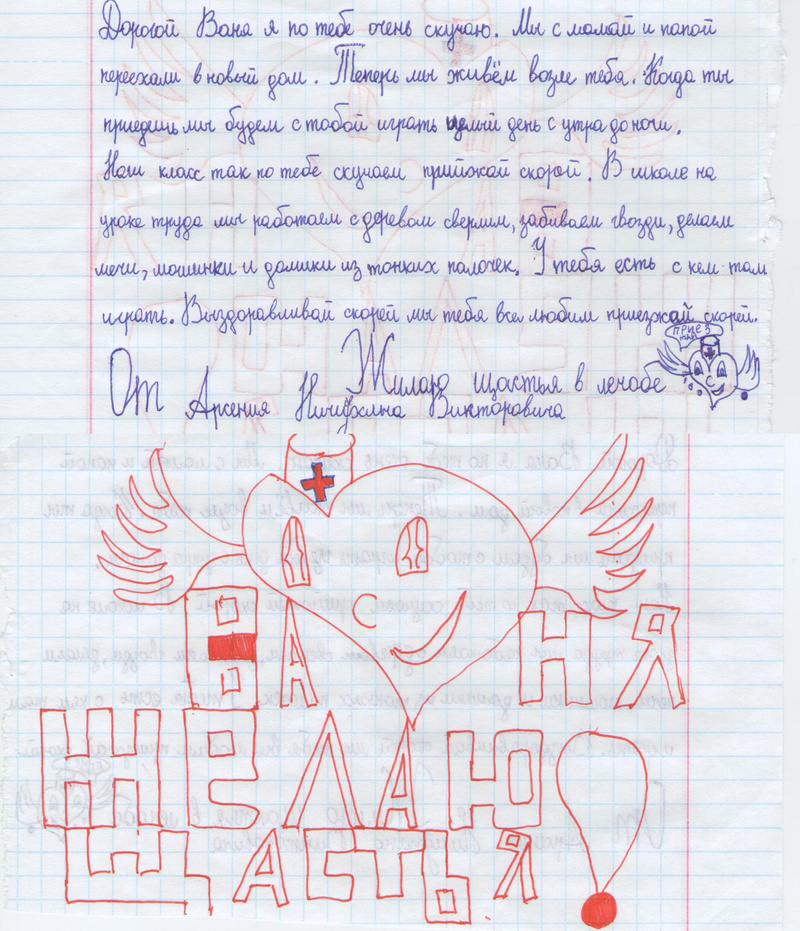 Дорогой Ваня я по тебе очень скучаю. Мы с мамай и папой
переехали в новый дом. Теперь мы живём возле тебя. Когда ты
приедишь мы будем с тобой играть целый день с утра до ночи.
Наш класс так по тебе скучаем прийжай скорой. В школе на
уроке труда мы работаем с деревом сверлим, забиваем гвозди, делаем
мечи, машинки и домики из тонких палочек. У тебя есть с кем там
играть. Выздоравливай скорей мы тебя все любим приезжай скорей.
ПРИЕЗ
ЖАЙ
Жилаю щастья в лечобе
От Арсения Викторовича
ВАНЯ
ЖЕЛАЮ
ЩАСТЬЯ!